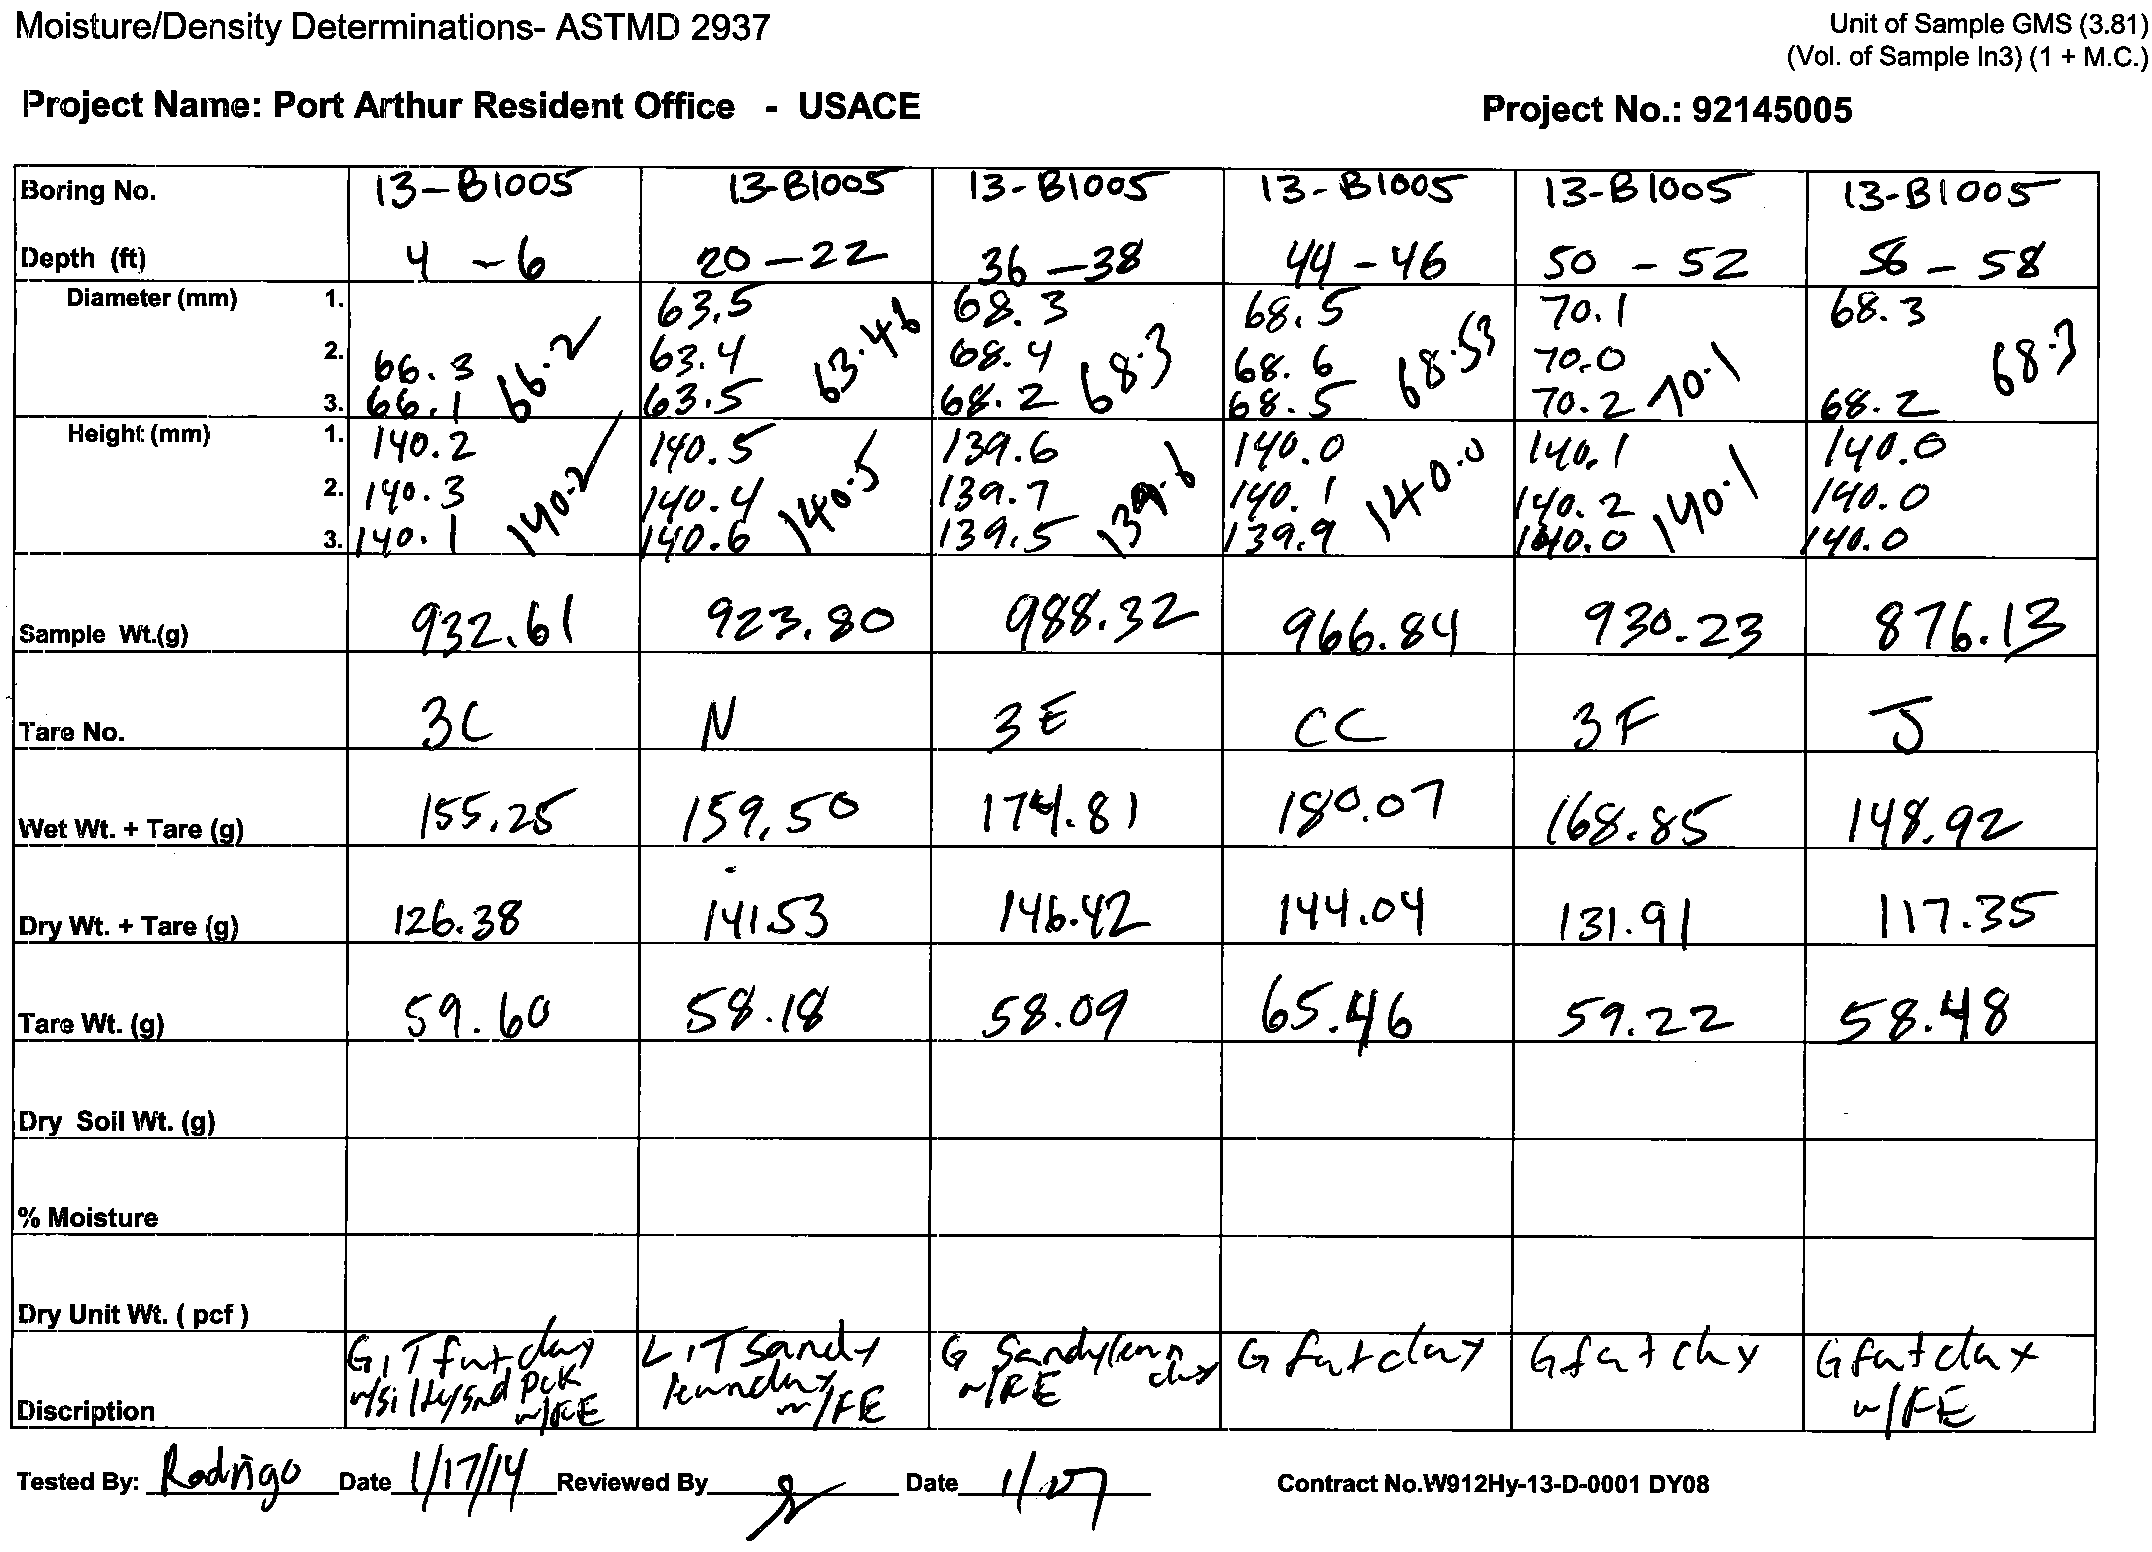 Moisture/Density Determinations- ASTMD 2937
Unit of Sample GMS (3.81)
(Vol. of Sample In3) (1 + M.C.)
Project Name: Port Arthur Resident Office - USACE
Project No.: 92145005
Boring No. 13-B1005 13-B1005 13-B1005 13-B1005 13-B1005 13-B1005
Depth (ft) 4 - 6 20 - 22 36 - 38 44 - 46 50 - 52 56 - 58
Diameter (mm) 1. 63.5 68.3 68.5 70.1 68.3
2. 66.3 66.2 63.4 63.46 68.4 68.3 68.6 68.53 70.0 70.1 68.3
3. 66.1 63.5 68.2 68.5 70.2 68.2
Height (mm) 1. 140.2 140.5 139.6 140.0 140.1 140.0
2. 140.3 140.2 140.4 140.5 139.7 139.6 140.1 140.0 140.2 140.1 140.0
3. 140.1 140.6 139.5 139.9 140.0 140.0
Sample Wt.(g) 932.61 923.80 988.32 966.84 930.23 876.13
Tare No. 3C N 3E CC 3F J
Wet Wt. + Tare (g) 155.25 159.50 174.81 180.07 168.85 148.92
Dry Wt. + Tare (g) 126.38 141.53 146.42 144.04 131.91 117.35
Tare Wt. (g) 59.60 58.18 58.09 65.46 59.22 58.48
Dry Soil Wt. (g)
% Moisture
Dry Unit Wt. ( pcf )
G, T fat clay L, T Sandy G Sandy lean G fat clay G fat clay G fat clay
w/silty snd pck lean clay w/FE clay w/FE
Discription
Tested By: Rodrigo Date 1/17/14 Reviewed By Date 1/27 Contract No.W912Hy-13-D-0001 DY08